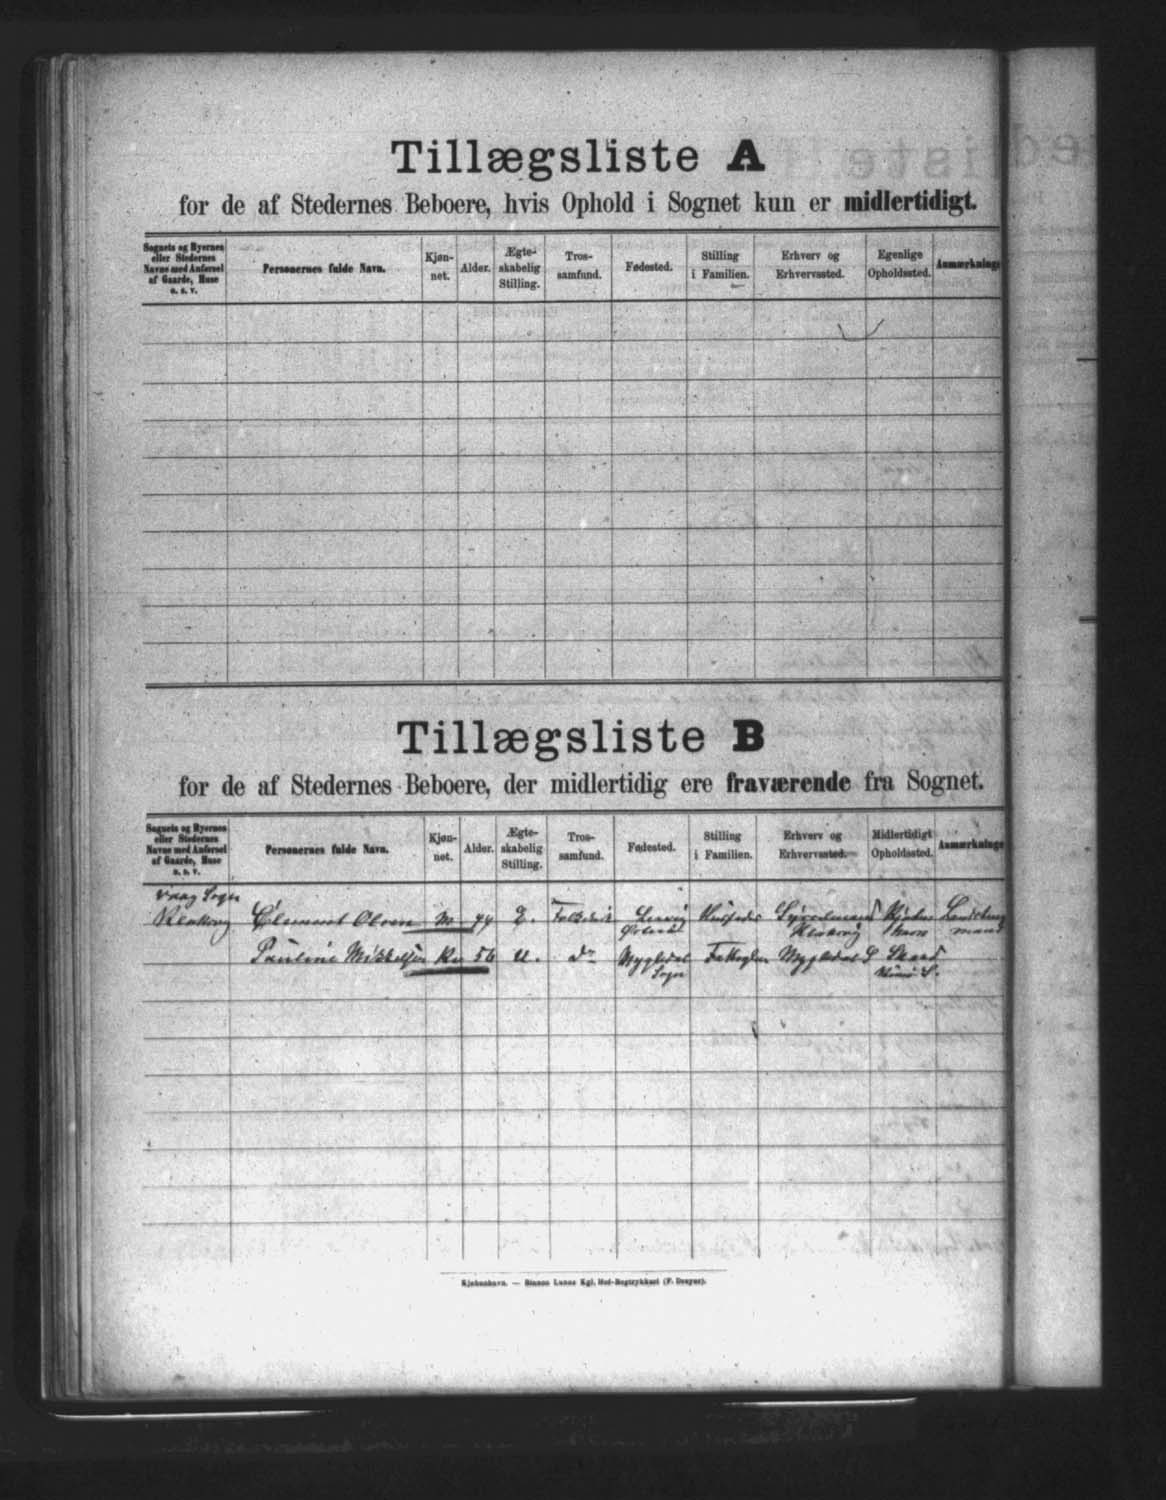 Tillægsliste A
for de af Stedernes Beboere, hvis Ophold i Sognet kun er midlertidigt.
Sognets og Byernes eller Stedernes Navne med Anførsel af Gaarde, Huse o. s. v. Personernes fulde Navn. Kjøn-net. Alder. Ægte-skabelig Stilling. Tros-samfund. Fødested. Stilling i Familien. Erhverv og Erhvervssted. Egenlige Opholdssted. Anmærkninge
Tillægsliste B
for de af Stedernes Beboere, der midlertidig ere fraværende fra Sognet.
Sognets og Byernes eller Stedernes Navne med Anførsel af Gaarde, Huse o. s. v. Personernes fulde Navn. Kjøn-net. Alder. Ægte-skabelig Stilling. Tros-samfund. Fødested. Stilling i Familien. Erhverv og Erhvervssted. Midlertidigt Opholdssted. Anmærkninge
Vaag Sogn
Olsen M 44 E. Folkekirk Husfader
Pauline Mikkelsen Kv 56 U. do Nygledal Sogn
Kjøbenhavn. — Bianco Lunos Kgl. Hof-Bogtrykkeri (F. Dreyer).